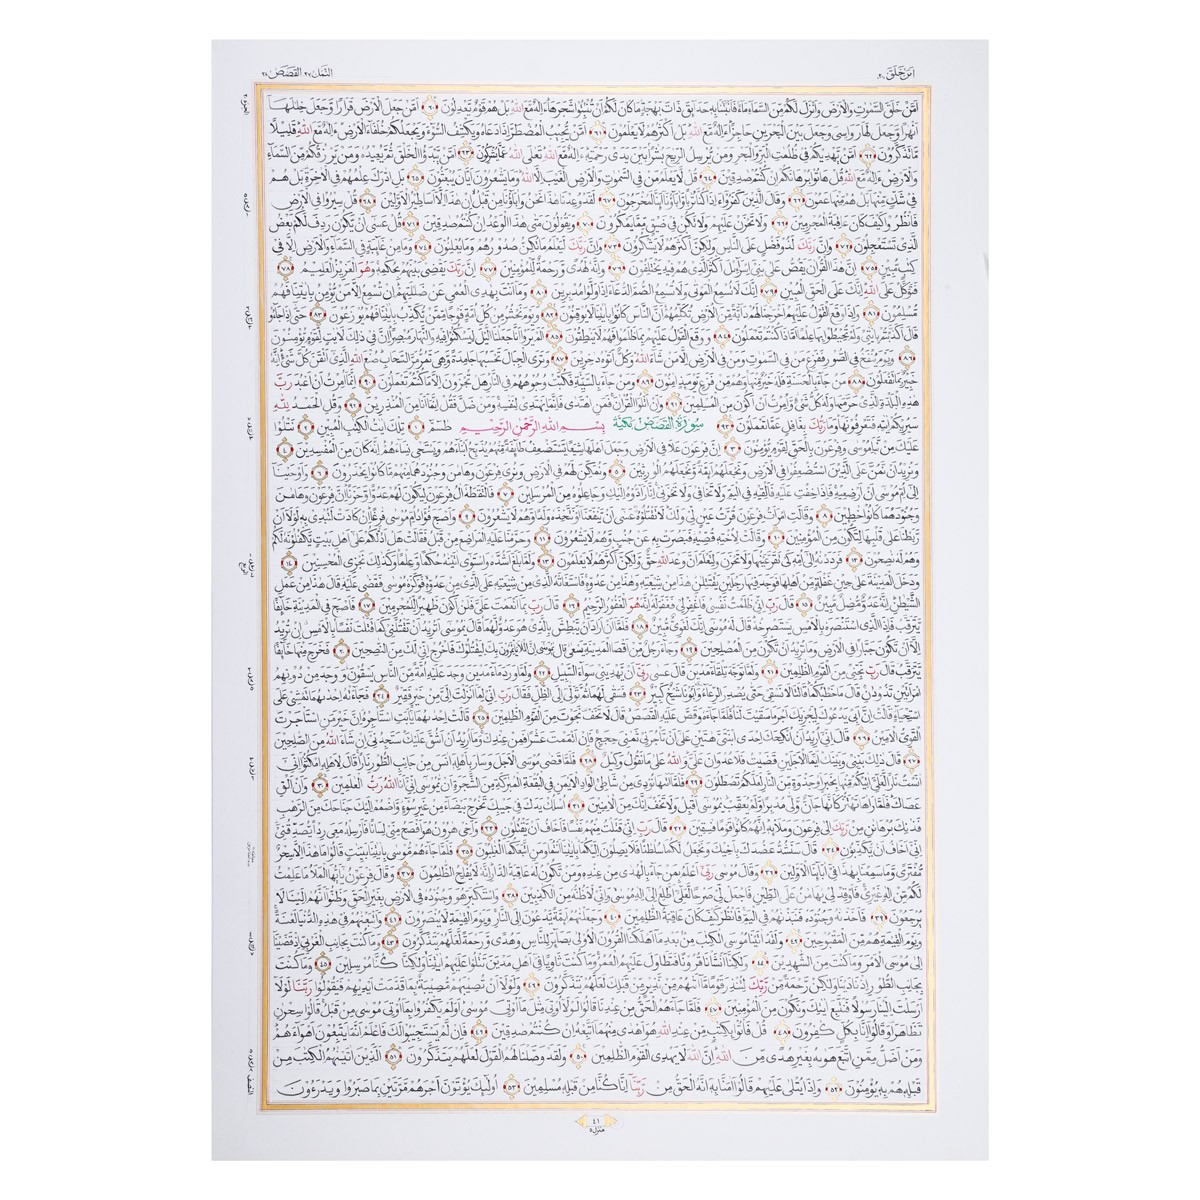 امن خلق ٢٠
النمل ٢٧ القصص ٢٨
امن خلق السموت والارض وانزل لكم من السماء ماء فانبتنا به حدائق ذات بهجة ما كان لكم ان تنبتوا شجرها ءاله مع الله بل هم قوم يعدلون ٦٠ امن جعل الارض قرارا وجعل خللها
انهرا وجعل لها رواسي وجعل بين البحرين حاجزا ءاله مع الله بل اكثرهم لا يعلمون ٦١ امن يجيب المضطر اذا دعاه ويكشف السوء ويجعلكم خلفاء الارض ءاله مع الله قليلا
ما تذكرون ٦٢ امن يهديكم في ظلمت البر والبحر ومن يرسل الريح بشرا بين يدي رحمته ءاله مع الله تعلى الله عما يشركون ٦٣ امن يبدؤا الخلق ثم يعيده ومن يرزقكم من السماء
والارض ءاله مع الله قل هاتوا برهانكم ان كنتم صدقين ٦٤ قل لا يعلم من في السموت والارض الغيب الا الله وما يشعرون ايان يبعثون ٦٥ بل ادرك علمهم في الاخرة بل هم
في شك منها بل هم منها عمون ٦٦ وقال الذين كفروا ءاذا كنا تربا وءاباؤنا ائنا لمخرجون ٦٧ لقد وعدنا هذا نحن وءاباؤنا من قبل ان هذا الا اساطير الاولين ٦٨ قل سيروا في الارض
فانظروا كيف كان عاقبة المجرمين ٦٩ ولا تحزن عليهم ولا تكن في ضيق مما يمكرون ٧٠ ويقولون متى هذا الوعد ان كنتم صدقين ٧١ قل عسى ان يكون ردف لكم بعض
الذي تستعجلون ٧٢ وان ربك لذو فضل على الناس ولكن اكثرهم لا يشكرون ٧٣ وان ربك ليعلم ما تكن صدورهم وما يعلنون ٧٤ وما من غائبة في السماء والارض الا في
كتب مبين ٧٥ ان هذا القران يقص على بني اسراءيل اكثر الذي هم فيه يختلفون ٧٦ وانه لهدى ورحمة للمؤمنين ٧٧ ان ربك يقضي بينهم بحكمه وهو العزيز العليم ٧٨
فتوكل على الله انك على الحق المبين ٧٩ انك لا تسمع الموتى ولا تسمع الصم الدعاء اذا ولوا مدبرين ٨٠ وما انت بهدي العمي عن ضللتهم ان تسمع الا من يؤمن بايتنا فهم
مسلمون ٨١ واذا وقع القول عليهم اخرجنا لهم دابة من الارض تكلمهم ان الناس كانوا بايتنا لا يوقنون ٨٢ ويوم نحشر من كل امة فوجا ممن يكذب بايتنا فهم يوزعون ٨٣ حتى اذا جاءو
قال اكذبتم بايتي ولم تحيطوا بها علما اماذا كنتم تعملون ٨٤ ووقع القول عليهم بما ظلموا فهم لا ينطقون ٨٥ الم يروا انا جعلنا اليل ليسكنوا فيه والنهار مبصرا ان في ذلك لايت لقوم يؤمنون
٨٦ ويوم ينفخ في الصور ففزع من في السموت ومن في الارض الا من شاء الله وكل اتوه دخرين ٨٧ وترى الجبال تحسبها جامدة وهي تمر مر السحاب صنع الله الذي اتقن كل شيء انه
خبير بما تفعلون ٨٨ من جاء بالحسنة فله خير منها وهم من فزع يومئذ امنون ٨٩ ومن جاء بالسيئة فكبت وجوههم في النار هل تجزون الا ما كنتم تعملون ٩٠ انما امرت ان اعبد رب
هذه البلدة الذي حرمها وله كل شيء وامرت ان اكون من المسلمين ٩١ وان اتلوا القران فمن اهتدى فانما يهتدي لنفسه ومن ضل فقل انما انا من المنذرين ٩٢ وقل الحمد لله
سيريكم ايته فتعرفونها وما ربك بغافل عما تعملون ٩٣ سورة القصص مكية بسم الله الرحمن الرحيم طسم ١ تلك ايت الكتب المبين ٢ نتلوا
عليك من نبا موسى وفرعون بالحق لقوم يؤمنون ٣ ان فرعون علا في الارض وجعل اهلها شيعا يستضعف طائفة منهم يذبح ابناءهم ويستحي نساءهم انه كان من المفسدين ٤
ونريد ان نمن على الذين استضعفوا في الارض ونجعلهم ائمة ونجعلهم الورثين ٥ ونمكن لهم في الارض ونري فرعون وهامن وجنودهما منهم ما كانوا يحذرون ٦ واوحينا
الى ام موسى ان ارضعيه فاذا خفت عليه فالقيه في اليم ولا تخافي ولا تحزني انا رادوه اليك وجاعلوه من المرسلين ٧ فالتقطه ال فرعون ليكون لهم عدوا وحزنا ان فرعون وهامن
وجنودهما كانوا خطين ٨ وقالت امرات فرعون قرت عين لي ولك لا تقتلوه عسى ان ينفعنا او نتخذه ولدا وهم لا يشعرون ٩ واصبح فؤاد ام موسى فرغا ان كادت لتبدي به لولا ان
ربطنا على قلبها لتكون من المؤمنين ١٠ وقالت لاخته قصيه فبصرت به عن جنب وهم لا يشعرون ١١ وحرمنا عليه المراضع من قبل فقالت هل ادلكم على اهل بيت يكفلونه لكم
وهم له نصحون ١٢ فرددنه الى امه كي تقر عينها ولا تحزن ولتعلم ان وعد الله حق ولكن اكثرهم لا يعلمون ١٣ ولما بلغ اشده واستوى اتينه حكما وعلما وكذلك نجزي المحسنين ١٤
ودخل المدينة على حين غفلة من اهلها فوجد فيها رجلين يقتتلن هذا من شيعته وهذا من عدوه فاستغثه الذي من شيعته على الذي من عدوه فوكزه موسى فقضى عليه قال هذا من عمل
الشيطن انه عدو مضل مبين ١٥ قال رب اني ظلمت نفسي فاغفر لي فغفر له انه هو الغفور الرحيم ١٦ قال رب بما انعمت علي فلن اكون ظهيرا للمجرمين ١٧ فاصبح في المدينة خائفا
يترقب فاذا الذي استنصره بالامس يستصرخه قال له موسى انك لغوي مبين ١٨ فلما ان اراد ان يبطش بالذي هو عدو لهما قال يموسى اتريد ان تقتلني كما قتلت نفسا بالامس ان تريد
الا ان تكون جبارا في الارض وما تريد ان تكون من المصلحين ١٩ وجاء رجل من اقصا المدينة يسعى قال يموسى ان الملا ياتمرون بك ليقتلوك فاخرج اني لك من النصحين ٢٠ فخرج منها خائفا
يترقب قال رب نجني من القوم الظلمين ٢١ ولما توجه تلقاء مدين قال عسى ربي ان يهديني سواء السبيل ٢٢ ولما ورد ماء مدين وجد عليه امة من الناس يسقون ووجد من دونهم
امراتين تذودان قال ما خطبكما قالتا لا نسقي حتى يصدر الرعاء وابونا شيخ كبير ٢٣ فسقى لهما ثم تولى الى الظل فقال رب اني لما انزلت الي من خير فقير ٢٤ فجاءته احدىهما تمشي على
استحياء قالت ان ابي يدعوك ليجزيك اجر ما سقيت لنا فلما جاءه وقص عليه القصص قال لا تخف نجوت من القوم الظلمين ٢٥ قالت احدىهما يابت استاجره ان خير من استاجرت
القوي الامين ٢٦ قال اني اريد ان انكحك احدى ابنتي هتين على ان تاجرني ثمني حجج فان اتممت عشرا فمن عندك وما اريد ان اشق عليك ستجدني ان شاء الله من الصلحين
٢٧ قال ذلك بيني وبينك ايما الاجلين قضيت فلا عدون علي والله على ما نقول وكيل ٢٨ فلما قضى موسى الاجل وسار باهله انس من جانب الطور نارا قال لاهله امكثوا اني
انست نارا لعلي اتيكم منها بخبر او جذوة من النار لعلكم تصطلون ٢٩ فلما اتىها نودي من شاطئ الواد الايمن في البقعة المبركة من الشجرة ان يموسى اني انا الله رب العلمين ٣٠ وان الق
عصاك فلما راها تهتز كانها جان ولى مدبرا ولم يعقب يموسى اقبل ولا تخف انك من الامنين ٣١ اسلك يدك في جيبك تخرج بيضاء من غير سوء واضمم اليك جناحك من الرهب
فذنك برهانن من ربك الى فرعون وملائه انهم كانوا قوما فسقين ٣٢ قال رب اني قتلت منهم نفسا فاخاف ان يقتلون ٣٣ واخي هرون هو افصح مني لسانا فارسله معي ردءا يصدقني
اني اخاف ان يكذبون ٣٤ قال سنشد عضدك باخيك ونجعل لكما سلطنا فلا يصلون اليكما بايتنا انتما ومن اتبعكما الغلبون ٣٥ فلما جاءهم موسى بايتنا بينت قالوا ما هذا الا سحر
مفترى وما سمعنا بهذا في ابائنا الاولين ٣٦ وقال موسى ربي اعلم بمن جاء بالهدى من عنده ومن تكون له عاقبة الدار انه لا يفلح الظلمون ٣٧ وقال فرعون يايها الملا ما علمت
لكم من اله غيري فاوقد لي يهامن على الطين فاجعل لي صرحا لعلي اطلع الى اله موسى واني لاظنه من الكذبين ٣٨ واستكبر هو وجنوده في الارض بغير الحق وظنوا انهم الينا لا
يرجعون ٣٩ فاخذنه وجنوده فنبذنهم في اليم فانظر كيف كان عاقبة الظلمين ٤٠ وجعلنهم ائمة يدعون الى النار ويوم القيمة لا ينصرون ٤١ واتبعنهم في هذه الدنيا لعنة
ويوم القيمة هم من المقبوحين ٤٢ ولقد اتينا موسى الكتب من بعد ما اهلكنا القرون الاولى بصائر للناس وهدى ورحمة لعلهم يتذكرون ٤٣ وما كنت بجانب الغربي اذ قضينا
الى موسى الامر وما كنت من الشهدين ٤٤ ولكنا انشانا قرونا فتطاول عليهم العمر وما كنت ثاويا في اهل مدين تتلوا عليهم ايتنا ولكنا كنا مرسلين ٤٥ وما كنت
بجانب الطور اذ نادينا ولكن رحمة من ربك لتنذر قوما ما اتىهم من نذير من قبلك لعلهم يتذكرون ٤٦ ولولا ان تصيبهم مصيبة بما قدمت ايديهم فيقولوا ربنا لولا
ارسلت الينا رسولا فنتبع ايتك ونكون من المؤمنين ٤٧ فلما جاءهم الحق من عندنا قالوا لولا اوتي مثل ما اوتي موسى اولم يكفروا بما اوتي موسى من قبل قالوا سحرن
تظهرا وقالوا انا بكل كفرون ٤٨ قل فاتوا بكتب من عند الله هو اهدى منهما اتبعه ان كنتم صدقين ٤٩ فان لم يستجيبوا لك فاعلم انما يتبعون اهواءهم
ومن اضل ممن اتبع هوىه بغير هدى من الله ان الله لا يهدي القوم الظلمين ٥٠ ولقد وصلنا لهم القول لعلهم يتذكرون ٥١ الذين اتينهم الكتب من
قبله هم به يؤمنون ٥٢ واذا يتلى عليهم قالوا امنا به انه الحق من ربنا انا كنا من قبله مسلمين ٥٣ اولئك يؤتون اجرهم مرتين بما صبروا ويدرءون
٤١
منزل ٥